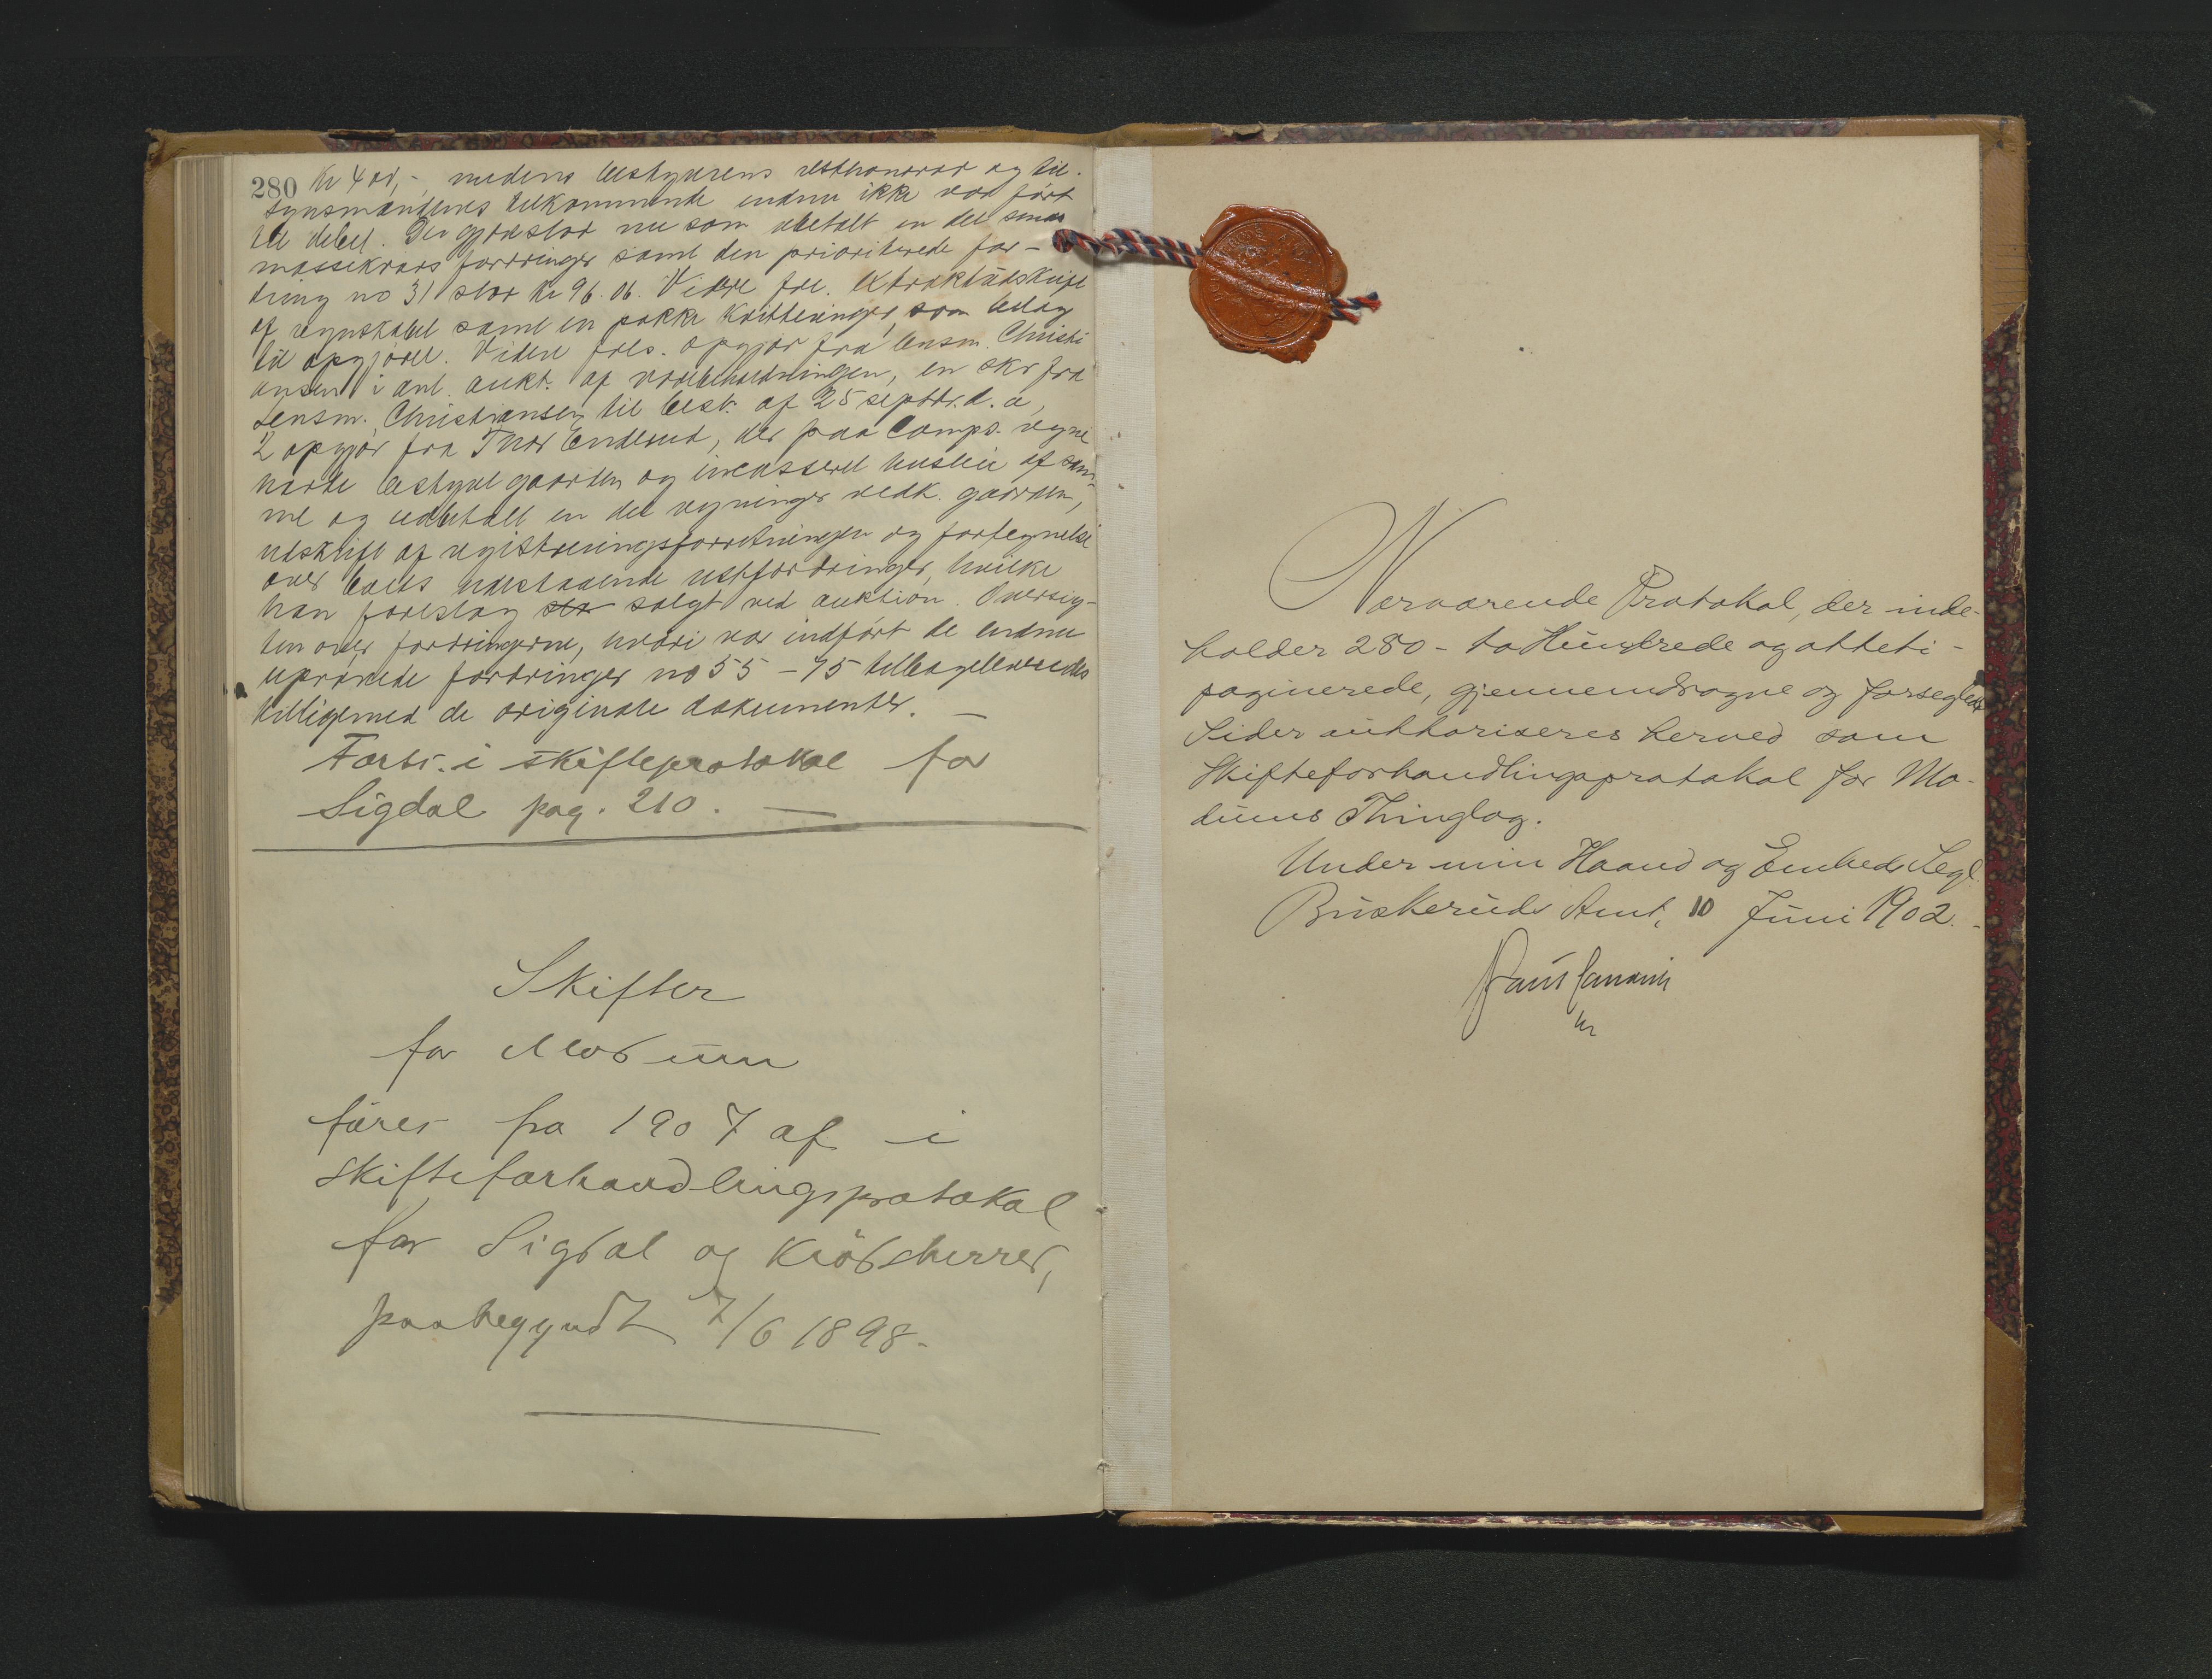 280 Kr 400,-, medens bestyrerens resthonorar og til-
synsmændenes tilkommende endnu ikke var ført
til debet. Der gjenstaar nu som ubetalt en del smaa
massekravs fordringer samt den prioriterede for-
dring no 31 stor kr 96.06. Videre frl. extraktudskrift
af regnskabet samt en pakke kvitteringer som bilag
til opgjøret. Videre frls. opgjør fra lensm. Christi
ansen i anl. aukt. af varebeholdningen, en skr fra
Lensm. Christiansen til best. af 25 septbr. d. a,
2 opgjør fra Thor Enderud, der paa Comps. vegne
havde bestyret gaarden og incasseret husleie af sam-
me og udbetalt en del regninger vedk. gaarden,
udskrift af registreringsforretningen og fortegnelse
over boets udestaaende restfordringer, hvilke
han foreslog solgt ved auktion. Oversig-
ten over fordringerne, hvori var indført de endnu
uprøvede fordringer no 55 - 75 tilbageleveredes
tilligemed de originale dokumenter. —
Forts. i skifteprotokol for
Sigdal pag. 210. —
Skifter
for Modum
føres fra 1907 af i
skifteforhandlingsprotokol
for Sigdal og Krødsherred,
paabegyndt 7/6 1898.
Nærværende Protokol, der inde-
holder 280 - to Hundrede og otteti -
paginerede, gjennemdragne og forseglede
Sider authoriseres herved som
Skifteforhandlingsprotokol for Mo-
dums Thinglag.
Under min Haand og Embeds Segl.
Buskeruds Amt, 10 Juni 1902.